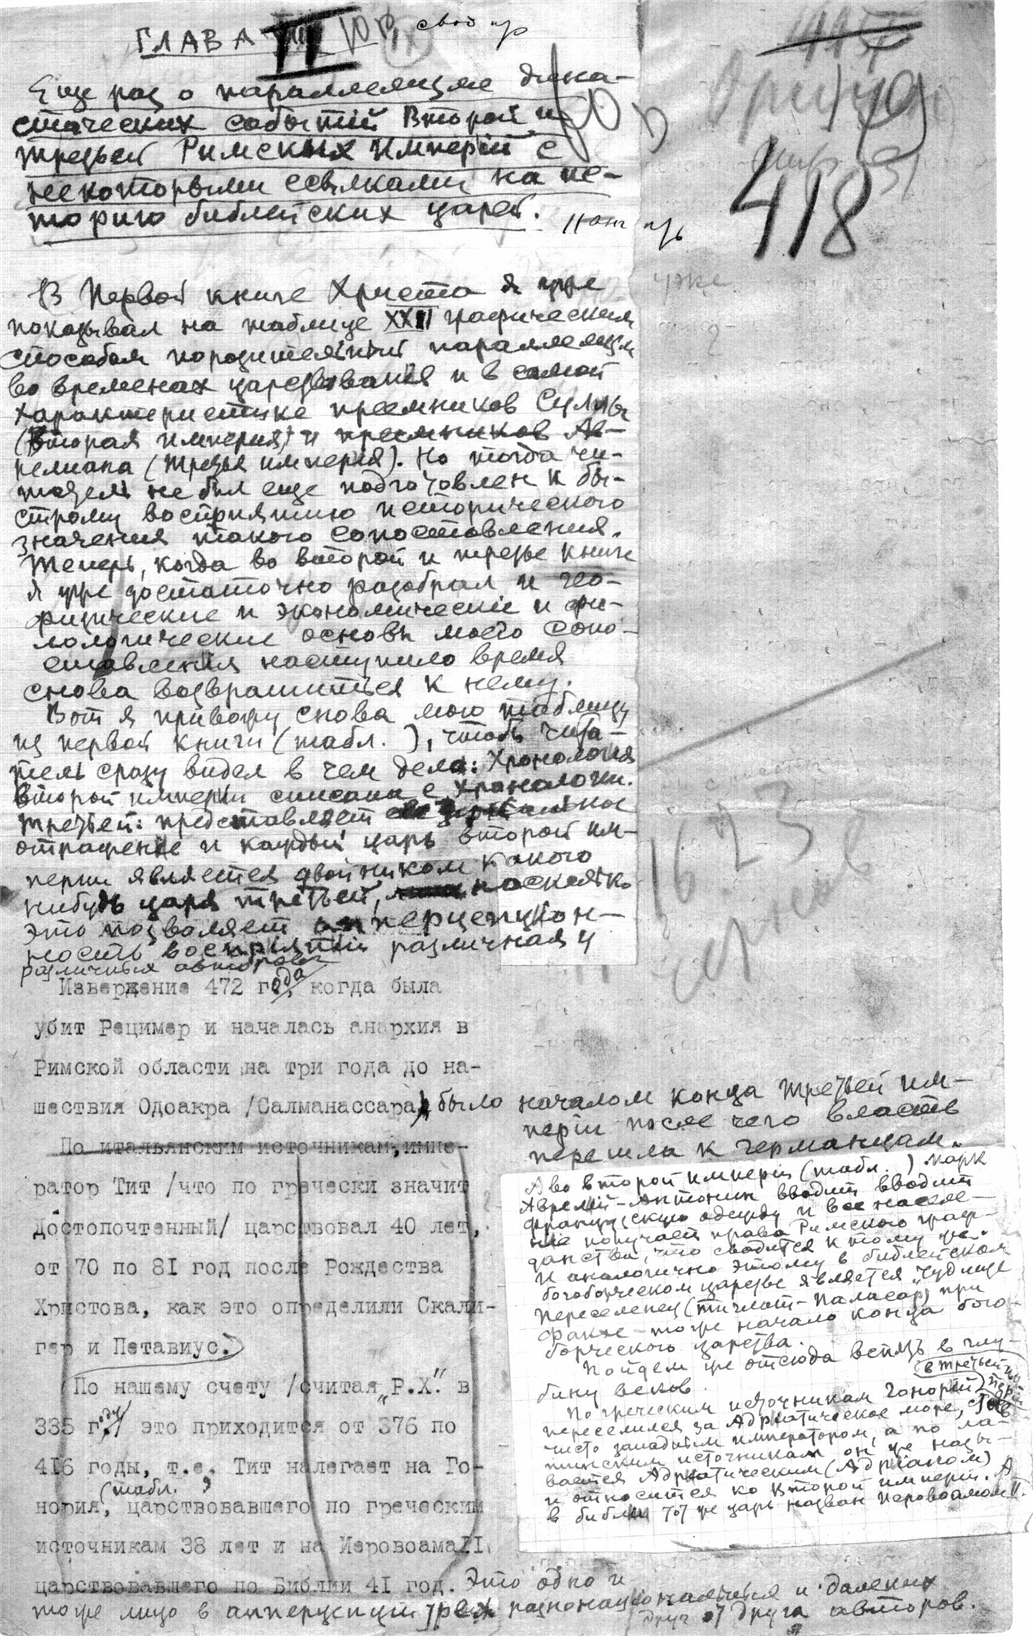 ГЛАВА II
418
Еще раз о параллелизме дина-
стических событий Второй и
третьей Римских империй с
некоторыми ссылками на ис-
торию библейских царей.
В Первой книге Христа я уже
показывал на таблице XXII графическим
способом поразительный параллелизм
во временах царствования и в самой
характеристике преемников Суллы
(Вторая империя) и преемников Ав-
релиана (третья империя). Но тогда чи-
татель не был еще подготовлен к бы-
строму восприятию исторического
значения такого сопоставления.
Теперь, когда во второй и третьей книге
я уже достаточно разобрал и гео-
физические и экономические и фи-
лологические основы моего сопо-
ставления наступило время
снова возвратиться к нему.
Вот я привожу снова мою таблицу
из первой книги (табл. ), чтоб чита-
тель сразу видел в чем дело: Хронология
Второй империи списана с хронологии
третьей: представляет ее
отражение и каждый царь второй им-
перии является двойником какого
нибудь царя третьей, насколько
это позволяет апперцепцион-
ность восприятий различная у
различных авторов
Извержение 472 года, когда была
убит Рецимер и началась анархия в
Римской области на три года до на-
шествия Одоакра /Салманассара/ было началом конца третьей им-
перии после чего власть
перешла к германцам.
По итальянским источникам, импе-
ратор Тит /что по гречески значит
достопочтенный/ царствовал 40 лет,
от 70 по 81 год после Рождества
Христова, как это определили Скали-
гер и Петавиус.
По нашему счету /считая „Р.Х." в
335 году/ это приходится от 376 по
416 годы, т.е. Тит налегает на Го-
нория, (табл. ) царствовавшего по греческим
источникам 38 лет и на Иеровоама II
царствовавшего по Библии 41 год. Это одно и
тоже лицо в апперцепции трех разнонациональных и далеких
друг от друга авторов.
А во второй империи (табл. ) Марк
Аврелий-Антонин вводит вводит
французскую одежду и все населе-
ние получает права Римского граж-
данства, что сводится к тому же.
И аналогично этому в библейском
богоборческом царстве является „Чудище
переселенец (Тиглат-Паласар) при
Факее - тоже начало конца бого-
борческого царства.
Пойдем же отсюда вспять в глу-
бину веков.
По греческим источникам Гонорий в третьей империи
переселился за Адриатическое море, став
чисто западным императором, а по ла-
тинским источникам он же назы-
вается Адриатическим (Адрианом)
и относится ко Второй империи. А
в библии тот же царь назван Иеровоамом II.